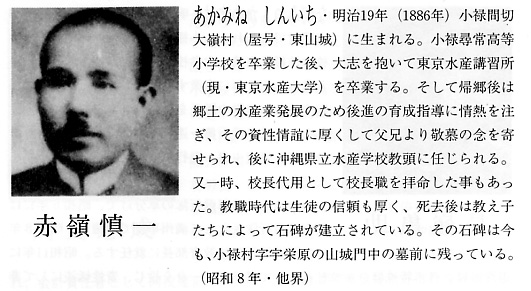 あかみね　しんいち・明治19年（1886年）小禄間切
大嶺村（屋号・東山城）に生まれる。小禄尋常高等
小学校を卒業した後、大志を抱いて東京水産講習所
（現・東京水産大学）を卒業する。そして帰郷後は
郷土の水産業発展のため後進の育成指導に情熱を注
ぎ、その資性情誼に厚くして父兄より敬慕の念を寄
せられ、後に沖縄県立水産学校教頭に任じられる。
又一時、校長代用として校長職を拝命した事もあっ
た。教職時代は生徒の信頼も厚く、死去後は教え子
たちによって石碑が建立されている。その石碑は今
も、小禄村字宇栄原の山城門中の墓前に残っている。
（昭和８年・他界）
赤嶺慎一